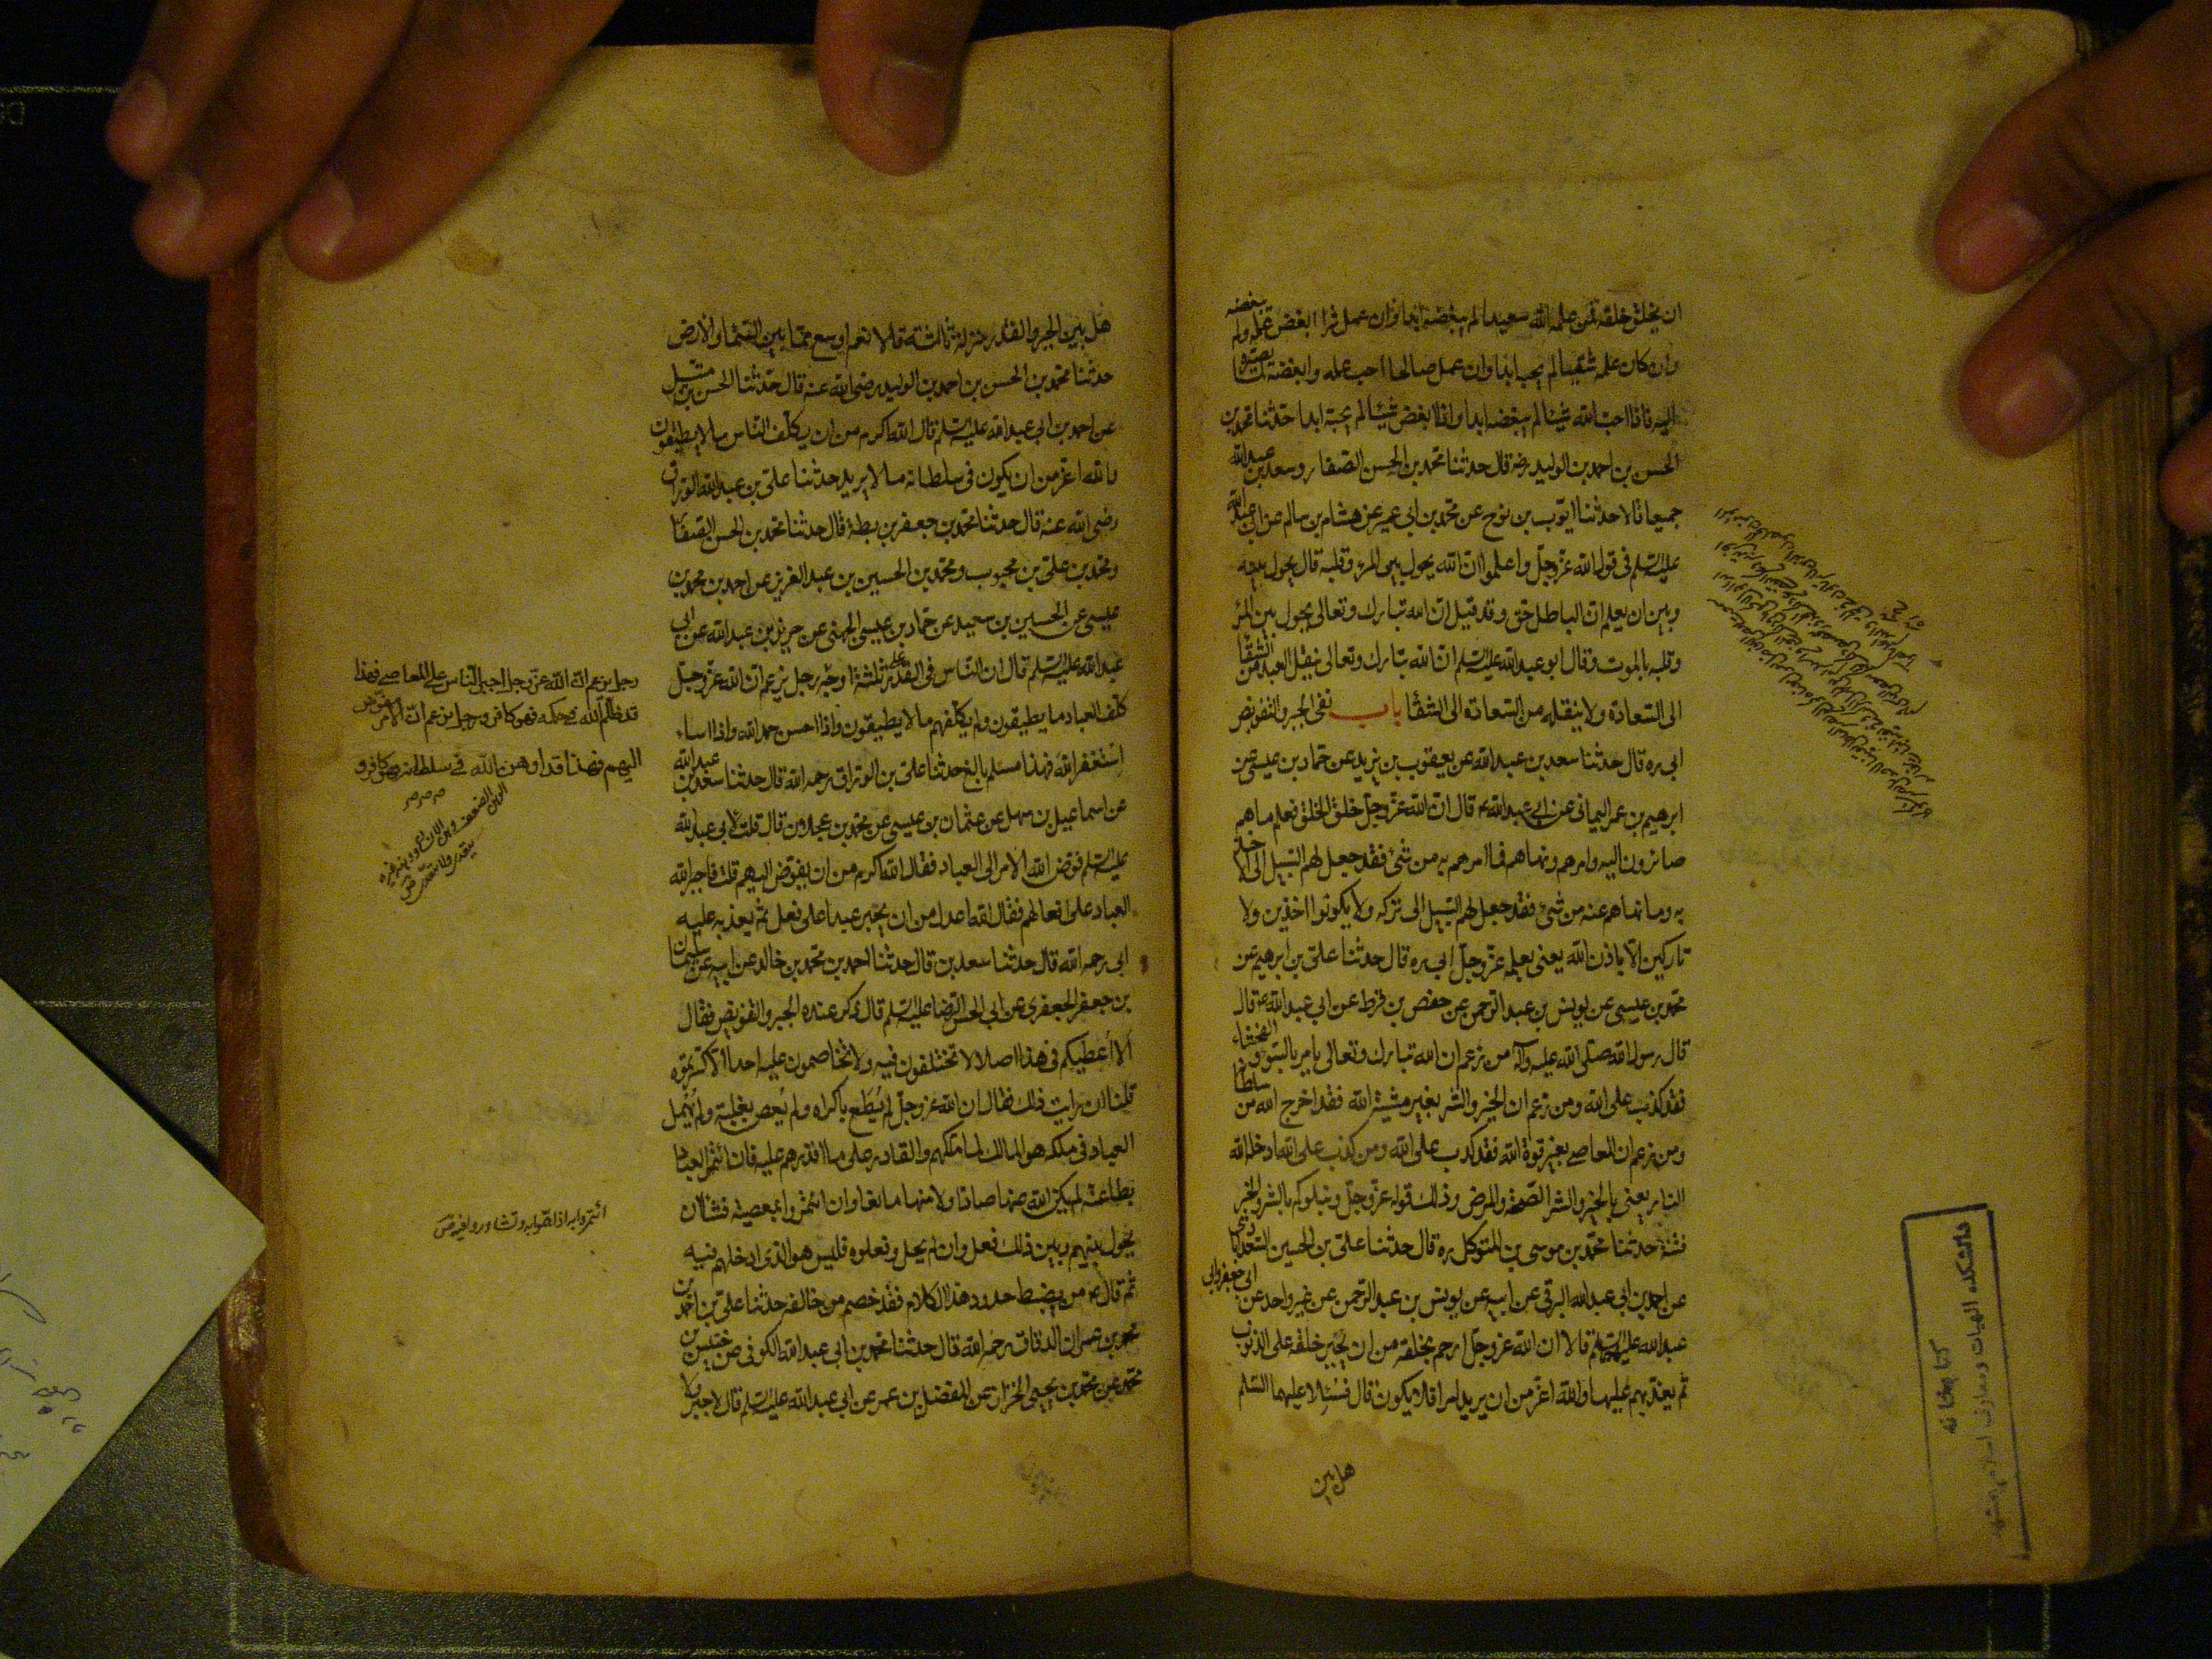 ان يخلق خلقه فمن علمه الله سعيدا لم يبغضه ابدا وان عمل شرا ابغض عمله ولم يبغضه
وان كان علمه شقيا لم يحبه ابدا وان عمل صالحا احب عمله وابغضه لما يصير
اليه فاذا احب الله شيئا لم يبغضه ابدا واذا ابغض شيئا لم يحبه ابدا حدثنا محمد بن
الحسن بن احمد بن الوليد ره قال حدثنا محمد بن الحسن الصفار وسعد بن عبدالله
جميعا قالا حدثنا ايوب بن نوح عن محمد بن ابي عمير عن هشام بن سالم عن ابي عبدالله
عليه السلم في قول الله عز وجل واعلموا ان الله يحول بين المرء وقلبه قال يحول بينه
وبين ان يعلم ان الباطل حق وقد قيل ان الله تبارك وتعالى يحول بين المرء
وقلبه بالموت وقال ابو عبدالله عليه السلم ان الله تبارك وتعالى ينقل العبد من الشقا
الى السعادة ولا ينقله من السعادة الى الشقا باب نفى الجبر والتفويض
ابي ره قال حدثنا سعد بن عبدالله عن يعقوب بن يزيد عن حماد بن عيسى عن
ابرهيم بن عمر اليماني عن ابي عبدالله ع قال ان الله عز وجل خلق الخلق فعلم ما هم
صائرون اليه وامرهم ونهاهم فما امرهم به من شئ فقد جعل لهم السبيل الى الاخذ
به وما نهاهم عنه من شئ فقد جعل لهم السبيل الى تركه ولا يكونوا اخذين ولا
تاركين الا باذن الله يعنى بعلمه عز وجل ابي ره قال حدثنا علي بن ابرهيم عن
محمد بن عيسى عن يونس بن عبد الرحمن عن حفص بن قرط عن ابي عبدالله ع قال
قال رسول الله صلى الله عليه وآله من زعم ان الله تبارك وتعالى يامر بالسوء والفحشاء
فقد كذب على الله ومن زعم ان الخير والشر بغير مشية الله فقد اخرج الله من سلطا
ومن زعم ان المعاصي بغير قوة الله فقد كذب على الله ومن كذب على الله ادخله الله
النار يعنى بالخير والشر الصحة والمرض وذلك قوله عز وجل ونبلوكم بالشر والخير
فتنة حدثنا محمد بن موسى بن المتوكل ره قال حدثنا علي بن الحسين السعدابادي
عن احمد بن ابي عبدالله البرقي عن ابيه عن يونس بن عبد الرحمن عن غير واحد عن ابي جعفر وابي
عبدالله عليهما السلم قالا ان الله عز وجل ارحم بخلقه من ان يجبر خلقه على الذنوب
ثم يعذبهم عليها والله اعز من ان يريد امرا فلا يكون قال فسئلا عليهما السلم
هل بين
كتابخانه
دانشكده الهيات ومعارف اسلامي مشهد
هل بين الجبر والقدر منزلة ثالثة قالا نعم اوسع مما بين السماء والارض
حدثنا محمد بن الحسن بن احمد بن الوليد رضى الله عنه قال حدثنا الحسن بن متيل
عن احمد بن ابي عبدالله عليه السلم قال الله اكرم من ان يكلف الناس ما لا يطيقون
والله اعز من ان يكون في سلطانه ما لا يريد حدثنا علي بن عبدالله الوراق
رضى الله عنه قال حدثنا محمد بن جعفر بن بطة قال حدثنا محمد بن الحسن الصفا
ومحمد بن علي بن محبوب ومحمد بن الحسين بن عبد العزيز عن احمد بن محمد بن
عيسى عن الحسين بن سعيد عن حماد بن عيسى الجهني عن حريز بن عبدالله عن ابي
عبدالله عليه السلم قال ان الناس في القدر على ثلثة اوجه رجل يزعم ان الله عز وجل
كلف العباد ما يطيقون ولم يكلفهم ما لا يطيقون واذا احسن حمد الله واذا اساء
استغفر الله فهذا مسلم بالغ حدثنا علي بن الوراق رحمه الله قال حدثنا سعد بن عبدالله
عن اسماعيل بن سهل عن عثمان بن عيسى عن محمد بن عجلان قال قلت لابي عبدالله
عليه السلم فوض الله الامر الى العباد فقال الله اكرم من ان يفوض اليهم قلت فاجبر الله
العباد على افعالهم فقال الله اعدل من ان يجبر عبدا على فعل ثم يعذبه عليه
ابي رحمه الله قال حدثنا سعد بن قال حدثنا احمد بن محمد بن خالد عن ابيه عن سليمان
بن جعفر الجعفري عن ابي الحسن الرضا عليه السلم قال ذكر عنده الجبر والتفويض فقال
الا اعطيكم في هذا اصلا لا تختلفون فيه ولا تخاصمون عليه احدا الا كسرتموه
قلنا ان رايت ذلك فقال ان الله عز وجل لم يطع باكراه ولم يعص بغلبة ولم يهمل
العباد في ملكه هو المالك لما ملكهم والقادر على ما اقدرهم عليه فان ائتمر العباد
بطاعته لم يكن الله عنها صادا ولا منها مانعا وان ائتمروا بمعصيته فشا ان
يحول بينهم وبين ذلك فعل وان لم يحل وفعلوه فليس هو الذي ادخلهم فيه
ثم قال ع من يضبط حدود هذا الكلام فقد خصم من خالفه حدثنا علي بن احمد بن
محمد بن عمران الدقاق رحمه الله قال حدثنا محمد بن ابي عبدالله الكوفي عن خنيس بن
محمد عن محمد بن يحيى الخزاز عن المفضل بن عمر عن ابي عبدالله عليه السلم قال لا جبر ولا
رجل يزعم ان الله عز وجل اجبر الناس على المعاصي فهذا
قد ظلم الله في حكمه فهو كافر ورجل يزعم ان الامر مفوض
اليهم فهذا قد اوهن الله في سلطانه فهو كافر و
ائتمروا به اذا
وتشاوروا فيه